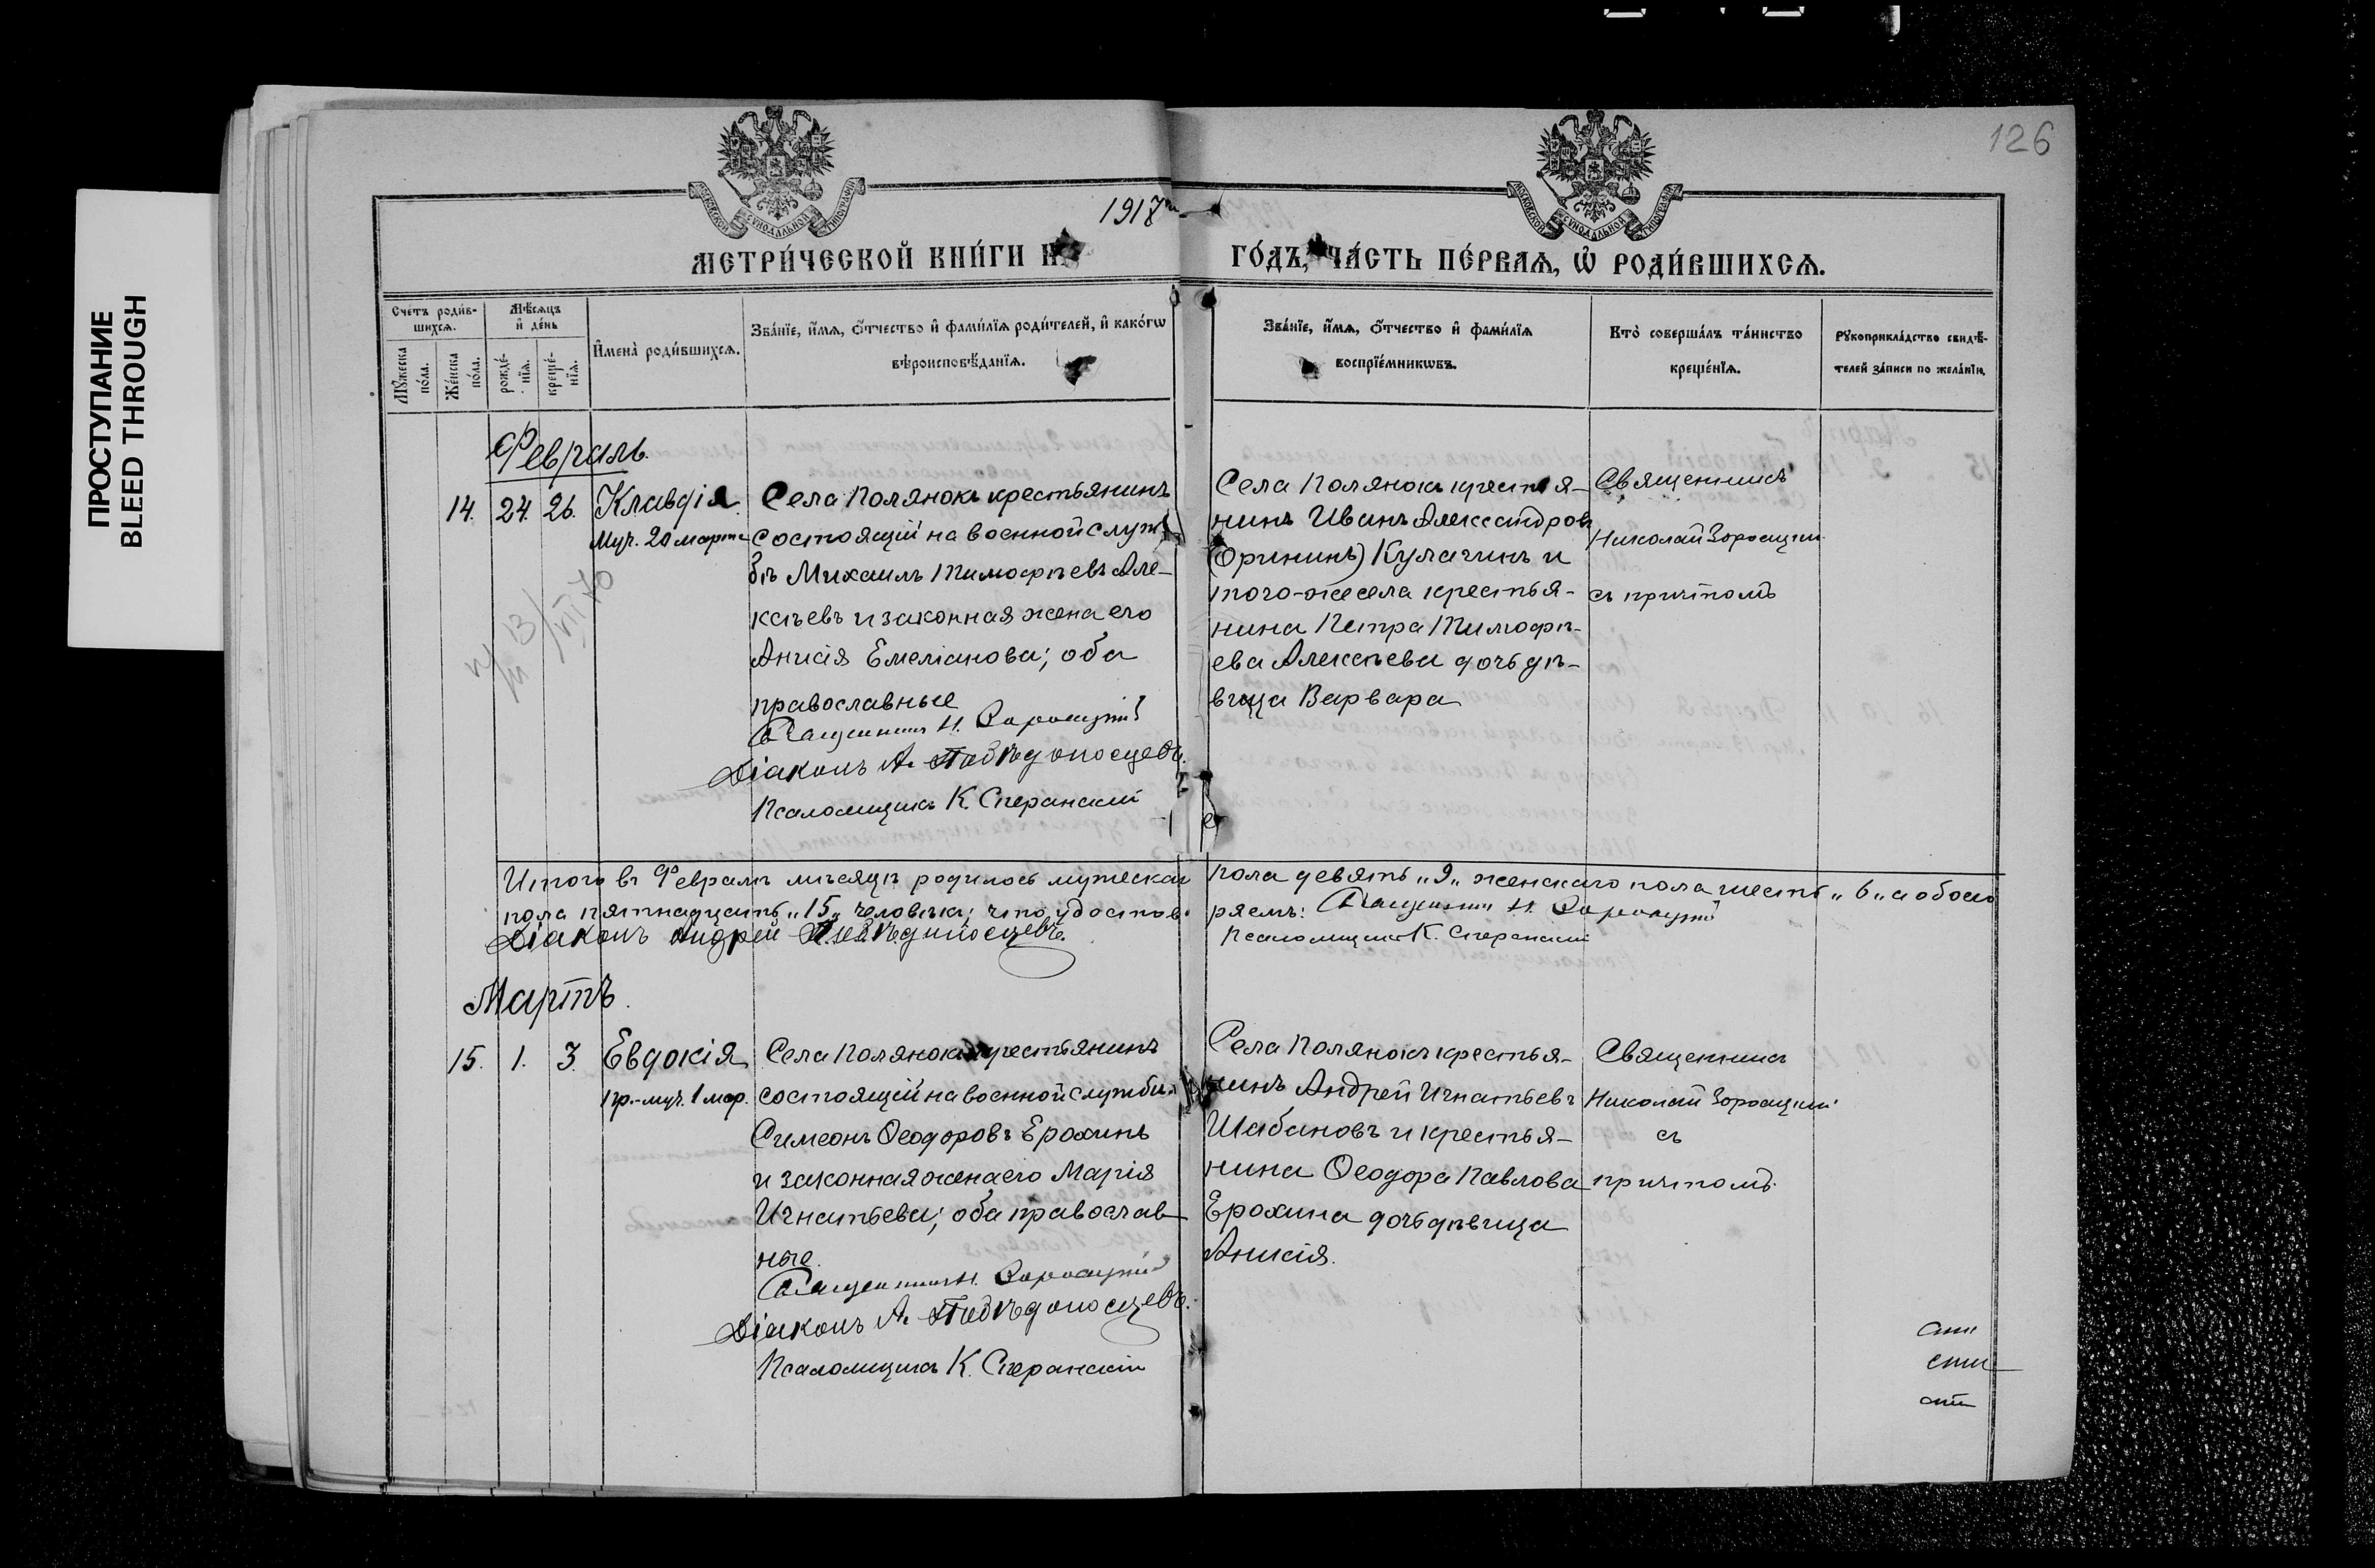 ПРОСТУПАНИЕ
BLEED THROUGH
126
МОСКОВСКОЙ СѴНОДАЛЬНОЙ ТИПОГРАФІИ
МОСКОВСКОЙ СѴНОДАЛЬНОЙ ТИПОГРАФІИ
1917
МЕТРИ́ЧЕСКОЙ КНИ́ГИ Н
ГО́ДЪ, ЧА́СТЬ ПЕ́РВАЯ, Ѡ РОДИ́ВШИХСЯ.
Сче́тъ роди́в-
шихся.
Мѣ́сяцъ
и де́нь
Мꙋ́жеска
по́ла.
Же́нска
по́ла.
рожде́-
нїя.
креще́-
нїя.
Имена̀ роди́вшихся.
Зва́нїе, и́мя, ѻ҆́тчество и фами́лїя роди́телей, и како́гѡ
вѣроисповѣ́данїя.
Зва́нїе, и́мя, ѻ҆́тчество и фами́лїя
воспрїе́мникѡвъ.
Кто̀ соверша́лъ та́инство
креще́нїя.
Рꙋкоприкла́дство свидѣ́-
телей за́писи по жела́нїю.
Февраль.
14. 24. 26. Клавдія
Муч. 20 марта
Села Полянокъ крестьянинъ
состоящій на военной служ
бѣ Михаилъ Тимофѣевъ Але-
ксѣевъ и законная жена его
Анисія Емеліанова; оба
православные
Священникъ Н. Зороацкій
Діаконъ А. Побѣдоносцевъ.
Псаломщикъ К. Сперанскій
Села Полянокъ крестья-
нинъ Иванъ Александровъ
(Орининъ) Кулагинъ и
того-же села крестья-
нина Петра Тимофѣ-
ева Алексѣева дочь дѣ-
вица Варвара
Священникъ
Николай Зороацкій
съ причтомъ
Итого въ Февралѣ мѣсяцѣ родилось мужескаго пола девять „9„ женскаго пола шесть „6„ а обоего
пола пятнадцать „15„ человѣка; что удостовѣ- ряемъ: Священникъ Н. Зороацкій
Діаконъ Андрей Побѣдоносцевъ.
Псаломщикъ К. Сперанскій
Мартъ.
15. 1. 3. Евдокія
пр.-муч. 1 мар.
Села Полянокъ крестьянинъ
состоящій на военной службѣ
Симеонъ Ѳеодоровъ Ерохинъ
и законная жена его Марія
Игнатьева; оба православ
ные.
Священникъ Н. Зороацкій
Діаконъ А. Побѣдоносцевъ.
Псаломщикъ К. Сперанскій
Села Полянокъ крестья-
нинъ Андрей Игнатьевъ
Шабановъ и крестья-
нина Ѳеодора Павлова
Ерохина дочь дѣвица
Анисія.
Священникъ
Николай Зороацкій
съ
причтомъ.